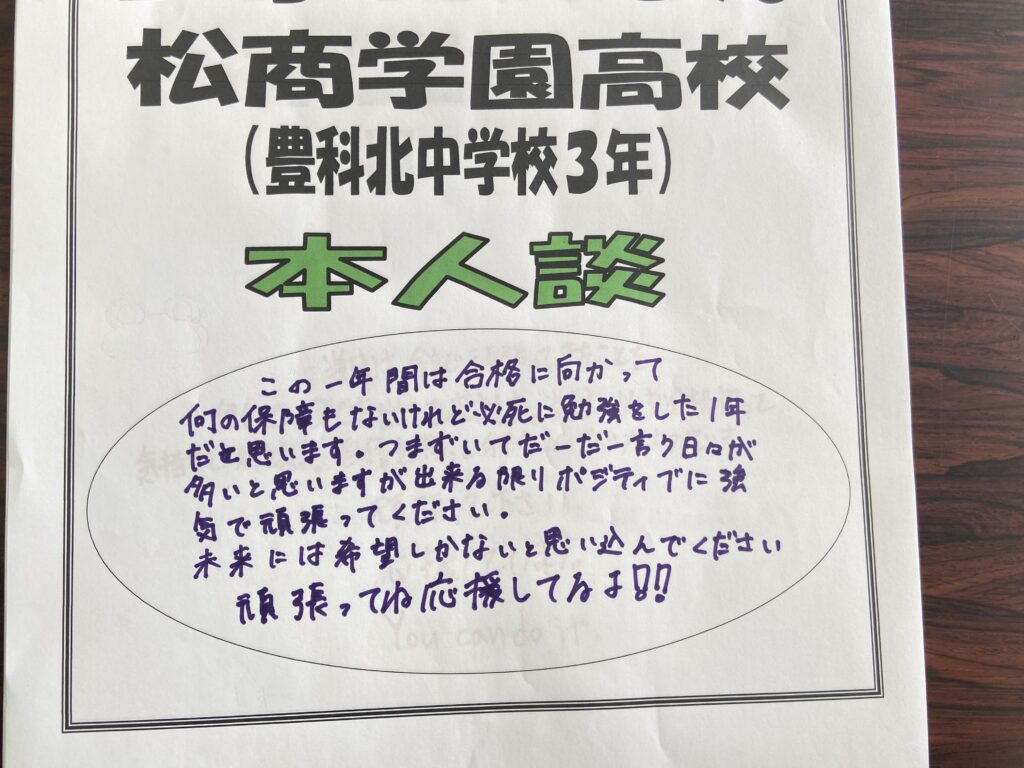 松商学園高校
(豊科北中学校3年)
本人談
この一年間は合格に向かって
何の保障もないけれど必死に勉強をした1年
だと思います。つまずいてだーだー言う日々が
多いと思いますが出来る限りポジティブに強
気で頑張ってください。
未来には希望しかないと思い込んでください
頑張ってね応援してるよ!!
You can do it